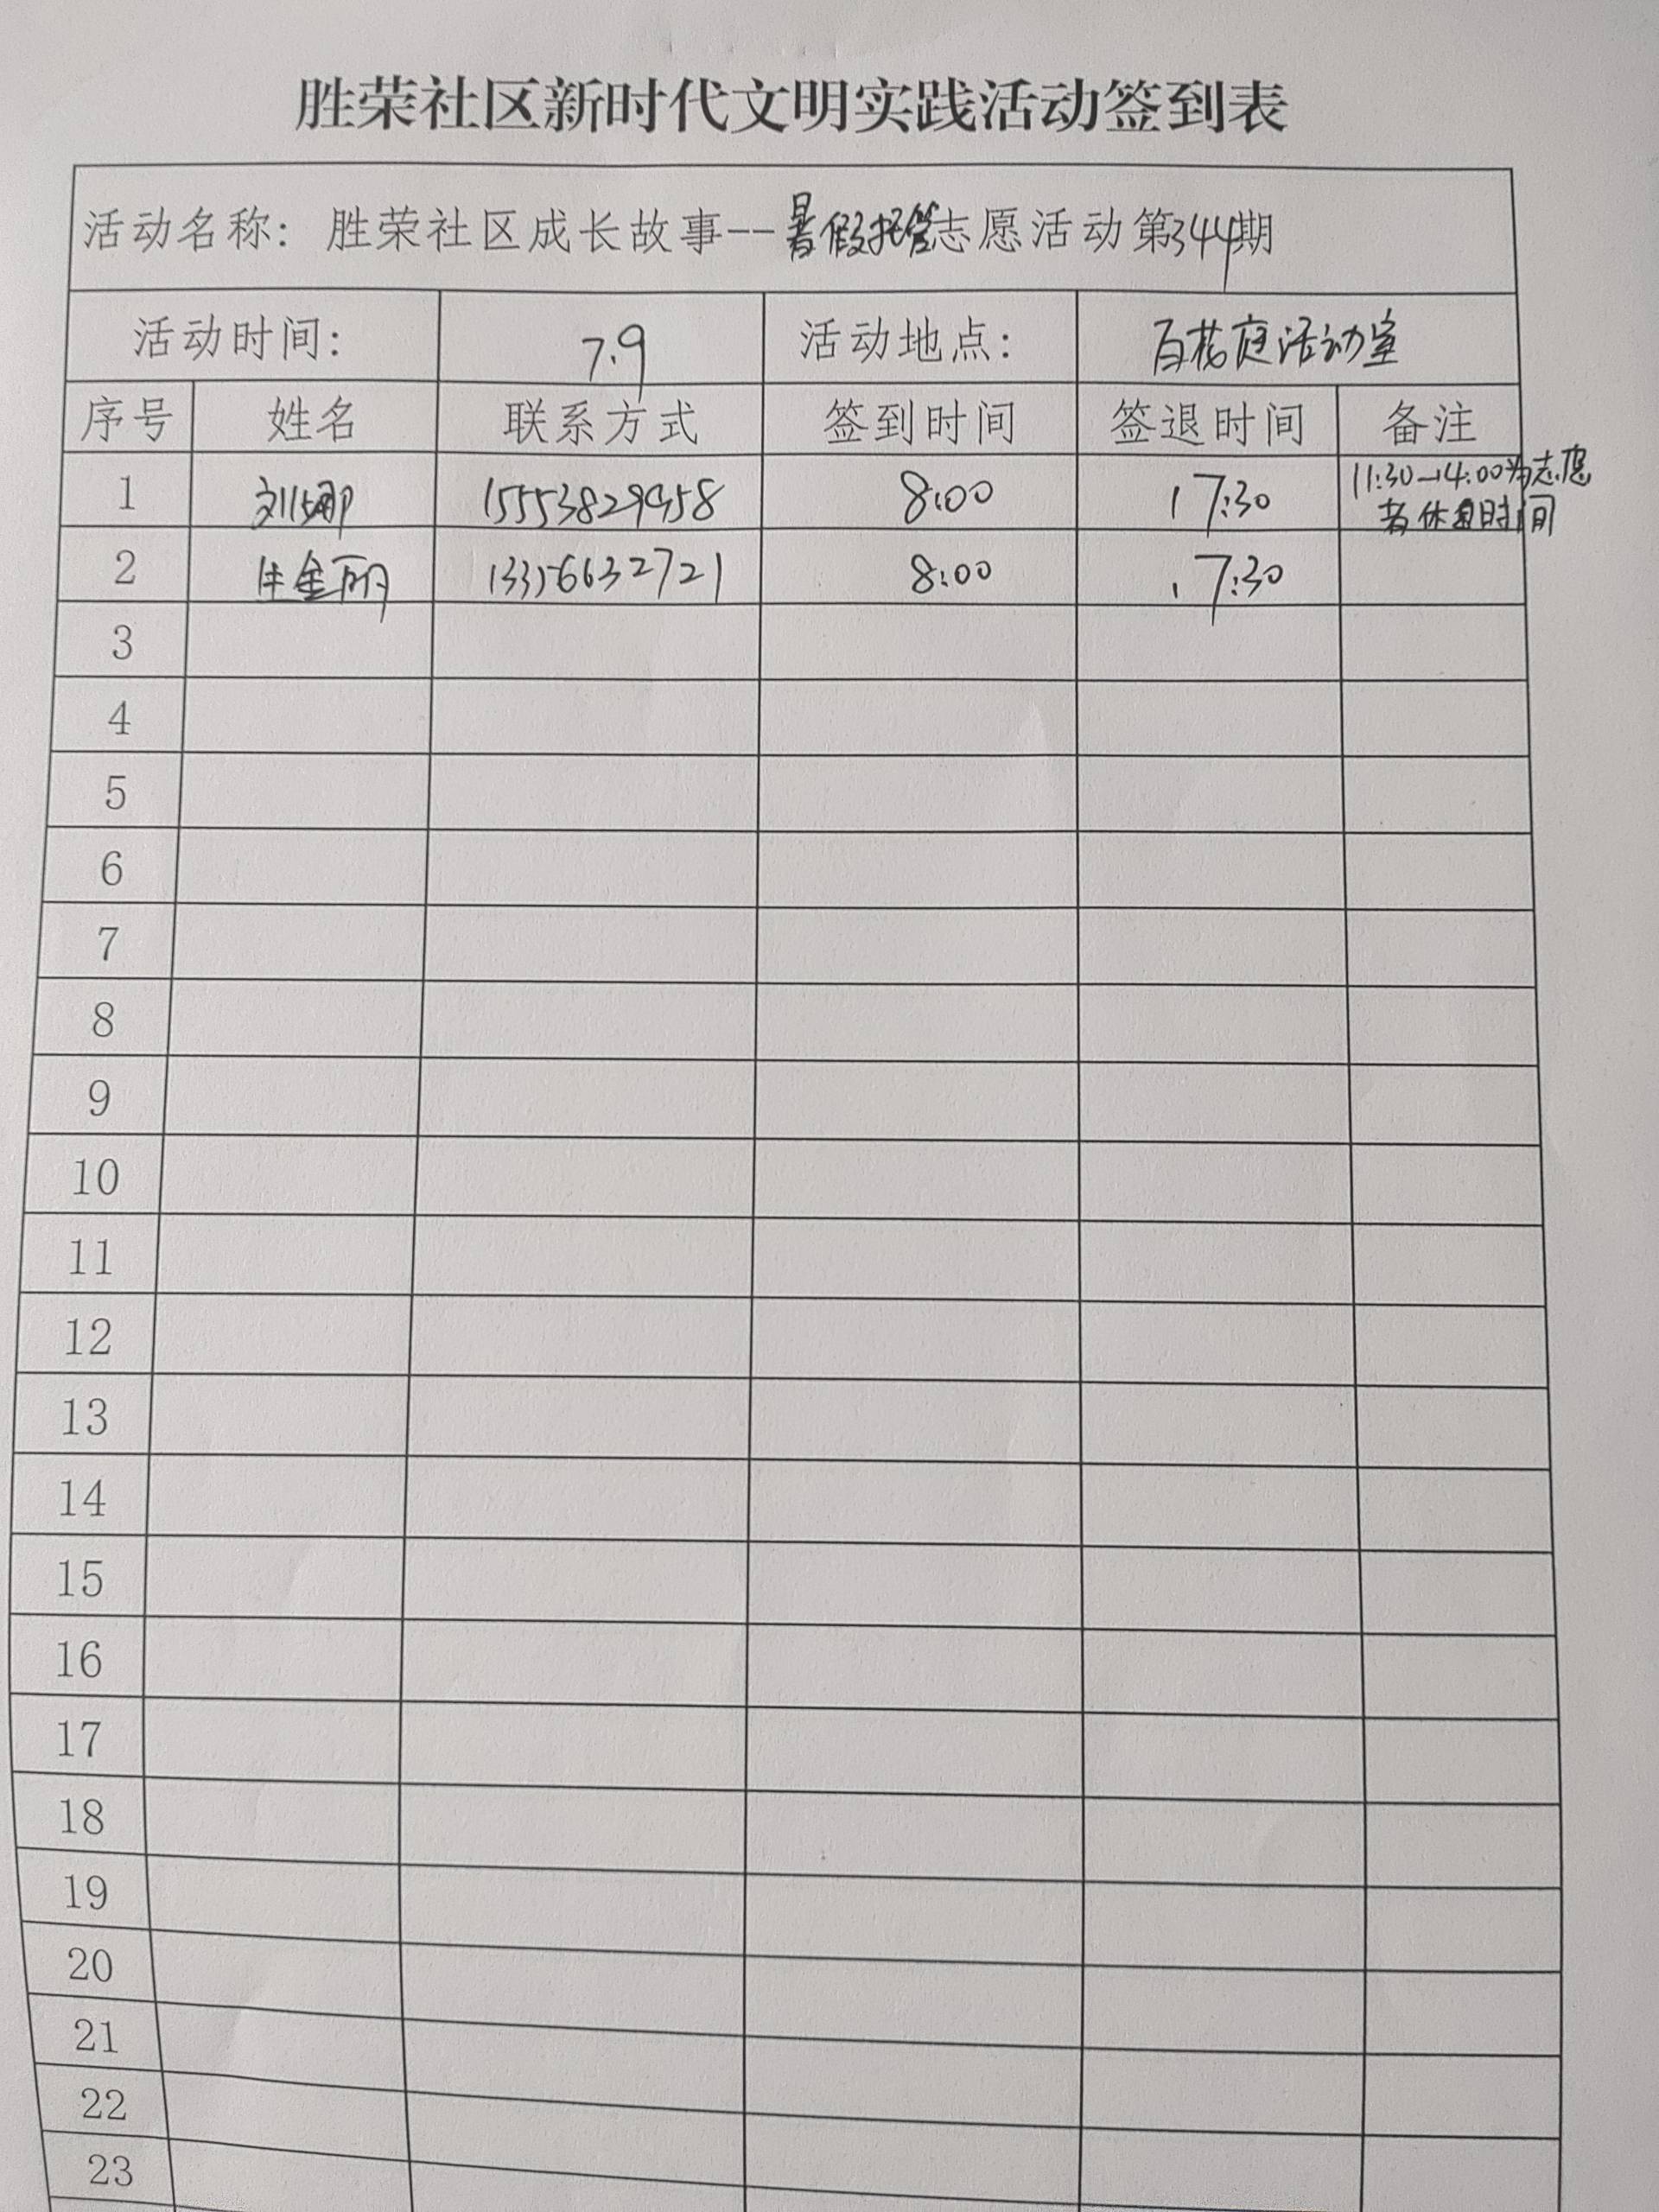 胜荣社区新时代文明实践活动签到表
活动名称：胜荣社区成长故事--暑假托管志愿活动第344期
活动时间： 7.9 活动地点： 百花庭活动室
序号 姓名 联系方式 签到时间 签退时间 备注
1 刘娜 15553829958 8:00 17:30 11:30-14:00为志愿
者休息时间
2 金丽 13356632721 8:00 17:30
3
4
5
6
7
8
9
10
11
12
13
14
15
16
17
18
19
20
21
22
23